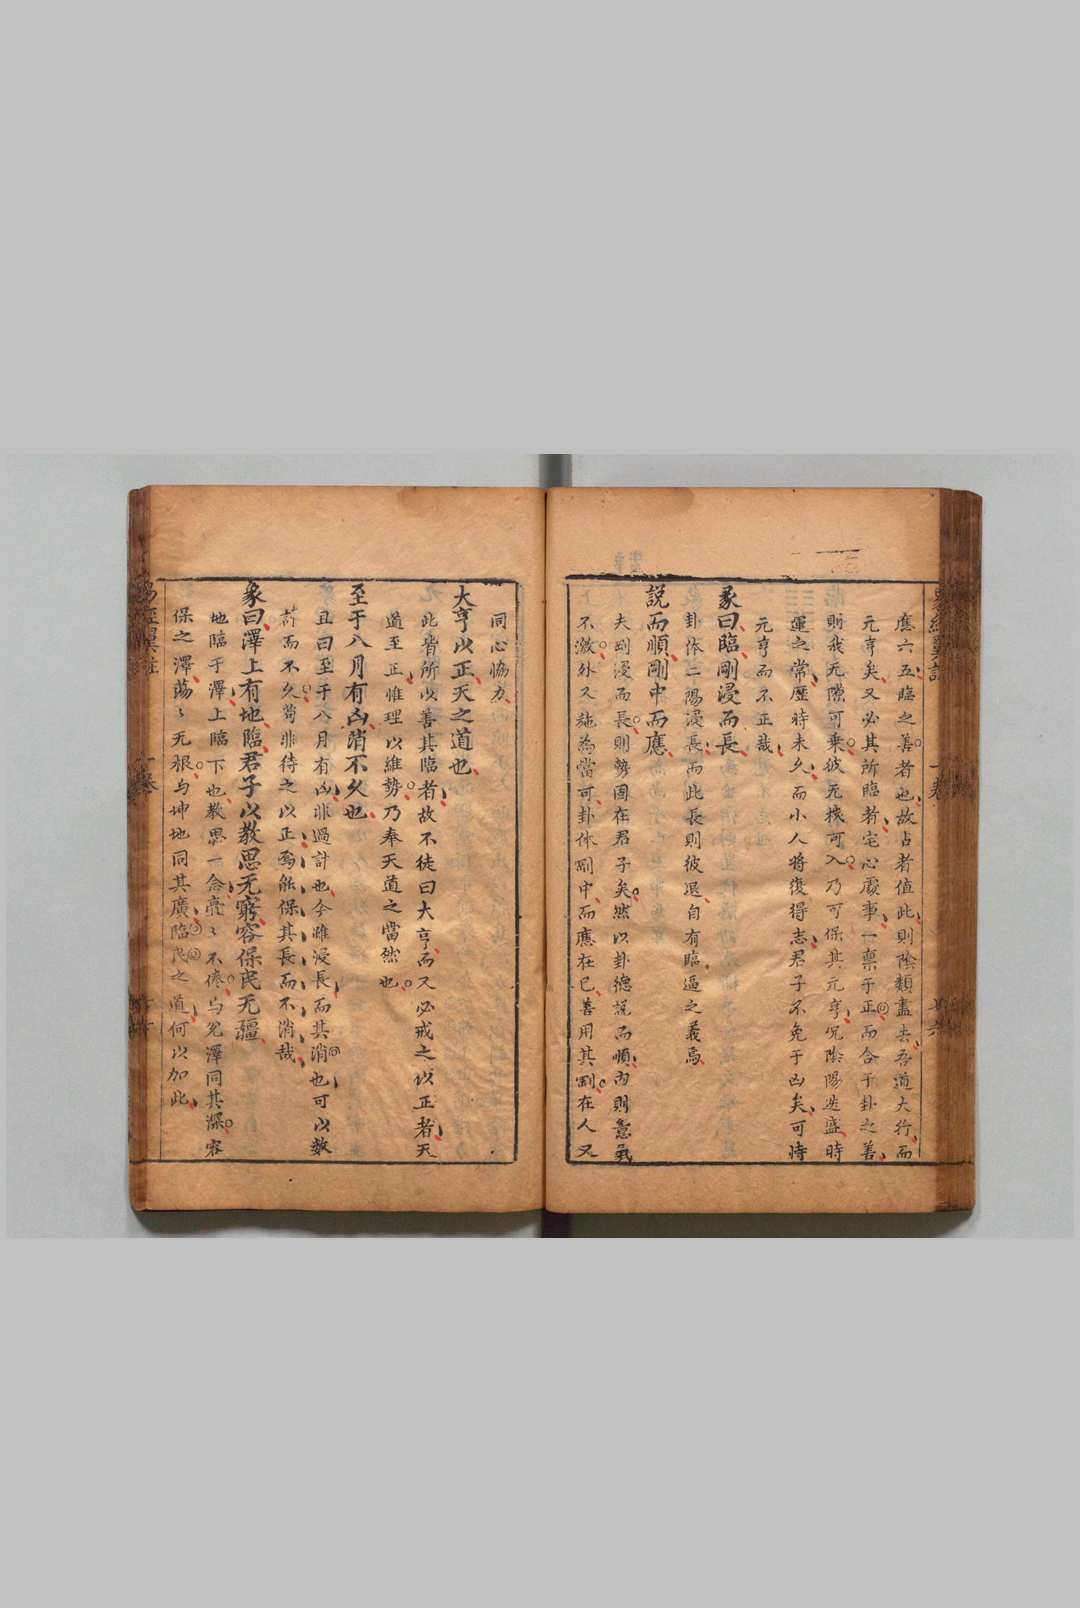 應六五臨之善者也故占者值此則陰類盡去吾道大行而
元亨矣又必其所臨者宅心處事一稟于正而合于卦之善
則我无隙可乘彼无機可入乃可保其元亨况陰陽迭盛時
運之常歷時未久而小人將復得志君子不免于凶矣可恃
元亨而不正哉
彖曰臨剛浸而長
卦体二陽浸長而此長則彼退自有臨逼之義焉
說而順剛中而應
夫剛浸而長則勢固在君子矣然以卦德說而順内則意氣
不激外又施為當可卦体剛中而應在已善用其剛在人又
同心恊力
大亨以正天之道也
此皆所以善其臨者故不徒曰大亨而又必戒之以正者天
道至正惟理以維勢乃奉天道之當然也
至于八月有凶消不久也
且曰至于八月有凶非過計也今雖浸長而其消也可以數
計而不久苟非待之以正焉能保其長而不消哉
象曰澤上有地臨君子以教思无窮容保民无疆
地臨于澤上臨下也教思一念亹〻不倦与兌澤同其深容
保之澤蕩〻无垠与坤地同其廣臨民之道何以加此